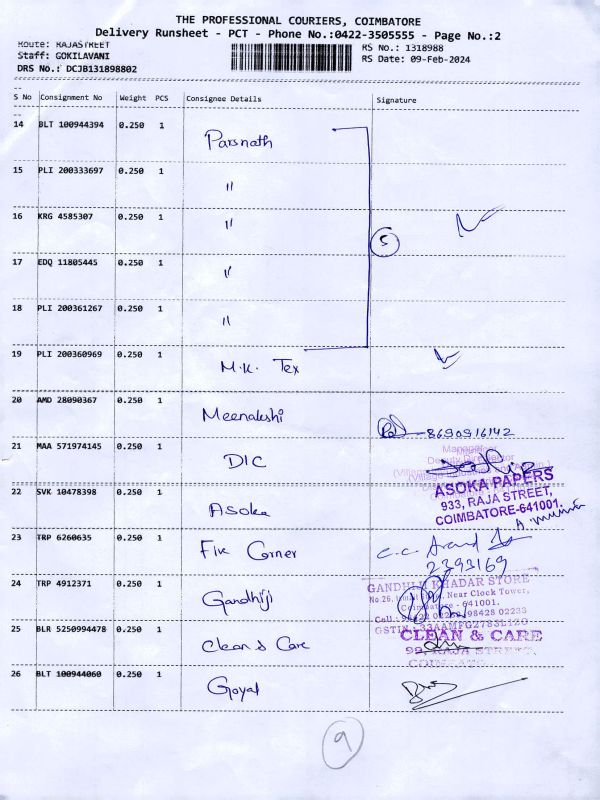 THE PROFESSIONAL COURIERS, COIMBATORE
Delivery Runsheet - PCT - Phone No.:0422-3505555 - Page No.:2
Route: RAJASTREET
RS No.: 1318988
Staff: GOKILAVANI
RS Date: 09-Feb-2024
DRS No.: DCJB131898802
S No Consignment No Weight PCS Consignee Details Signature
14 BLT 100944394 0.250 1 Parsnath
15 PLI 200333697 0.250 1 "
16 KRG 4585307 0.250 1 "
5
17 EDQ 11805445 0.250 1 "
18 PLI 200361267 0.250 1 "
19 PLI 200360969 0.250 1 M.K. Tex
20 AMD 28090367 0.250 1 Meenakshi
8690916142
21 MAA 571974145 0.250 1 DIC
Manager
Deputy Director
22 SVK 10478398 0.250 1 Asoka
ASOKA PAPERS
933, RAJA STREET,
COIMBATORE-641001.
23 TRP 6260635 0.250 1 Fix Corner
2393169
24 TRP 4912371 0.250 1 Gandhiji
KHADAR STORE
Near Clock Tower,
Coimbatore - 641001.
98428 02233
25 BLR 5250994478 0.250 1 Clean & Care
CLEAN & CARE
RAJA STREET,
26 BLT 100944060 0.250 1 Goyal
9